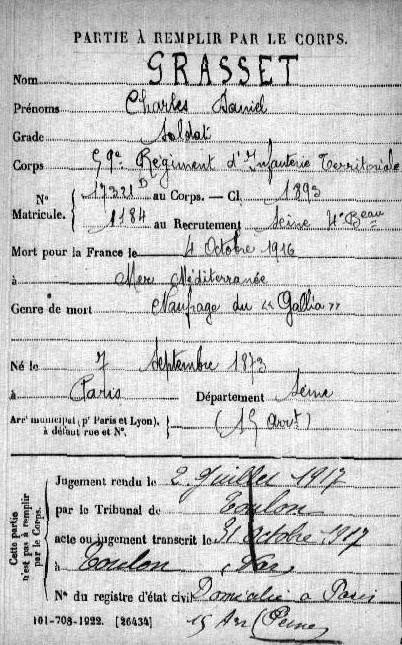 PARTIE À REMPLIR PAR LE CORPS.
Nom GRASSET
Prénoms Charles Daniel
Grade Soldat
Corps 59e Régiment d'Infanterie Territoriale
N° Matricule. { 17321 D au Corps. — Cl. 1893
1184 au Recrutement Seine 4e Beau
Mort pour la France le 4 Octobre 1916
à Mer Méditerranée
Genre de mort Naufrage du « Gallia »
Né le 7 Septembre 1873
à Paris Département Seine
Arrt municipal (pr Paris et Lyon), à défaut rue et N°. } (15 Arrt)
Cette partie n'est pas à remplir par le Corps.
Jugement rendu le 2 Juillet 1917
par le Tribunal de Toulon
acte ou jugement transcrit le 31 Octobre 1917
à Toulon Var
N° du registre d'état civil Domicilié à Paris
101-708-1922. [26434] 15 Arr (Seine)